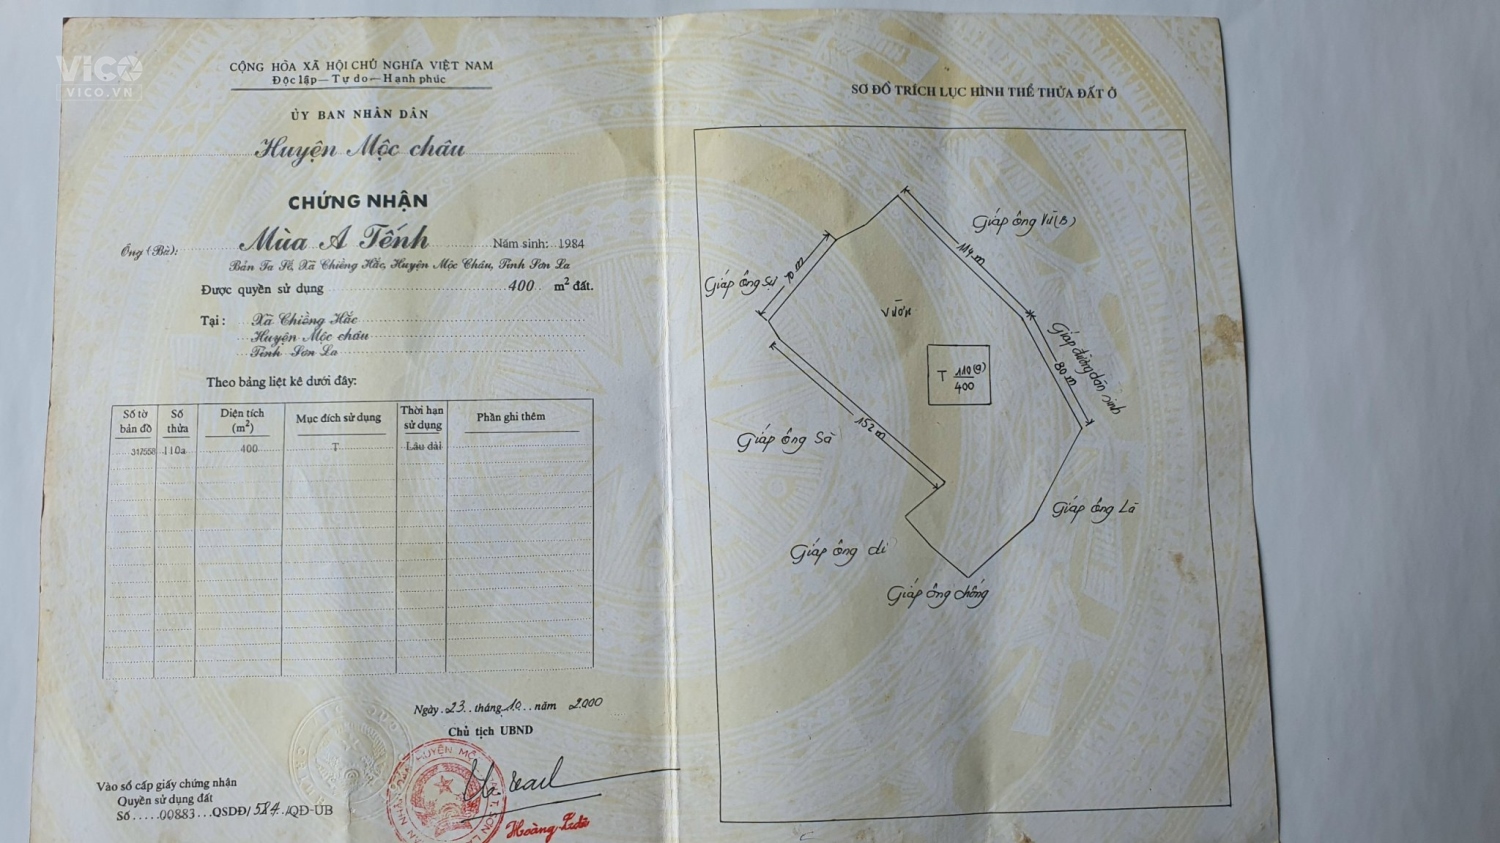 ViCO
VICO.VN
CỘNG HÒA XÃ HỘI CHỦ NGHĨA VIỆT NAM
Độc lập — Tự do — Hạnh phúc
ỦY BAN NHÂN DÂN
Huyện Mộc châu
CHỨNG NHẬN
Ông (Bà): Mùa A Tếnh Năm sinh: 1984
Bản Ta Sế, Xã Chiềng Hắc, Huyện Mộc Châu, Tỉnh Sơn La
Được quyền sử dụng 400 m² đất.
Tại: Xã Chiềng Hắc
Huyện Mộc châu
Tỉnh Sơn La
Theo bảng liệt kê dưới đây:
Số tờ bản đồ Số thửa Diện tích (m²) Mục đích sử dụng Thời hạn sử dụng Phần ghi thêm
317558 110a 400 T Lâu dài
Ngày 23 tháng 10 năm 2000
Chủ tịch UBND
HUYỆN MỘC
T. SƠN LA
Vào sổ cấp giấy chứng nhận
Quyền sử dụng đất
Số.....00883...QSDĐ/584./QĐ-UB
SƠ ĐỒ TRÍCH LỤC HÌNH THỂ THỬA ĐẤT Ở
Giáp ông Vừ(B)
114 m
Giáp ông Sự
70 m
Vườn
Giáp đường dân sinh
80 m
T 110(a)
400
152 m
Giáp ông Sà
Giáp ông Là
Giáp ông dì
Giáp ông chống